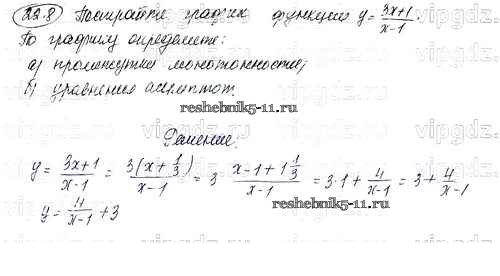 22.8 Постройте график функции y = (3x+1)/(x-1).
По графику определите:
а) промежутки монотонности;
б) уравнения асимптот.
reshebnik5-11.ru
Решение.
y = (3x+1)/(x-1) = 3(x+1/3)/(x-1) = 3 · (x-1+1 1/3)/(x-1) = 3·1 + 4/(x-1) = 3 + 4/(x-1)
reshebnik5-11.ru
y = 4/(x-1) + 3